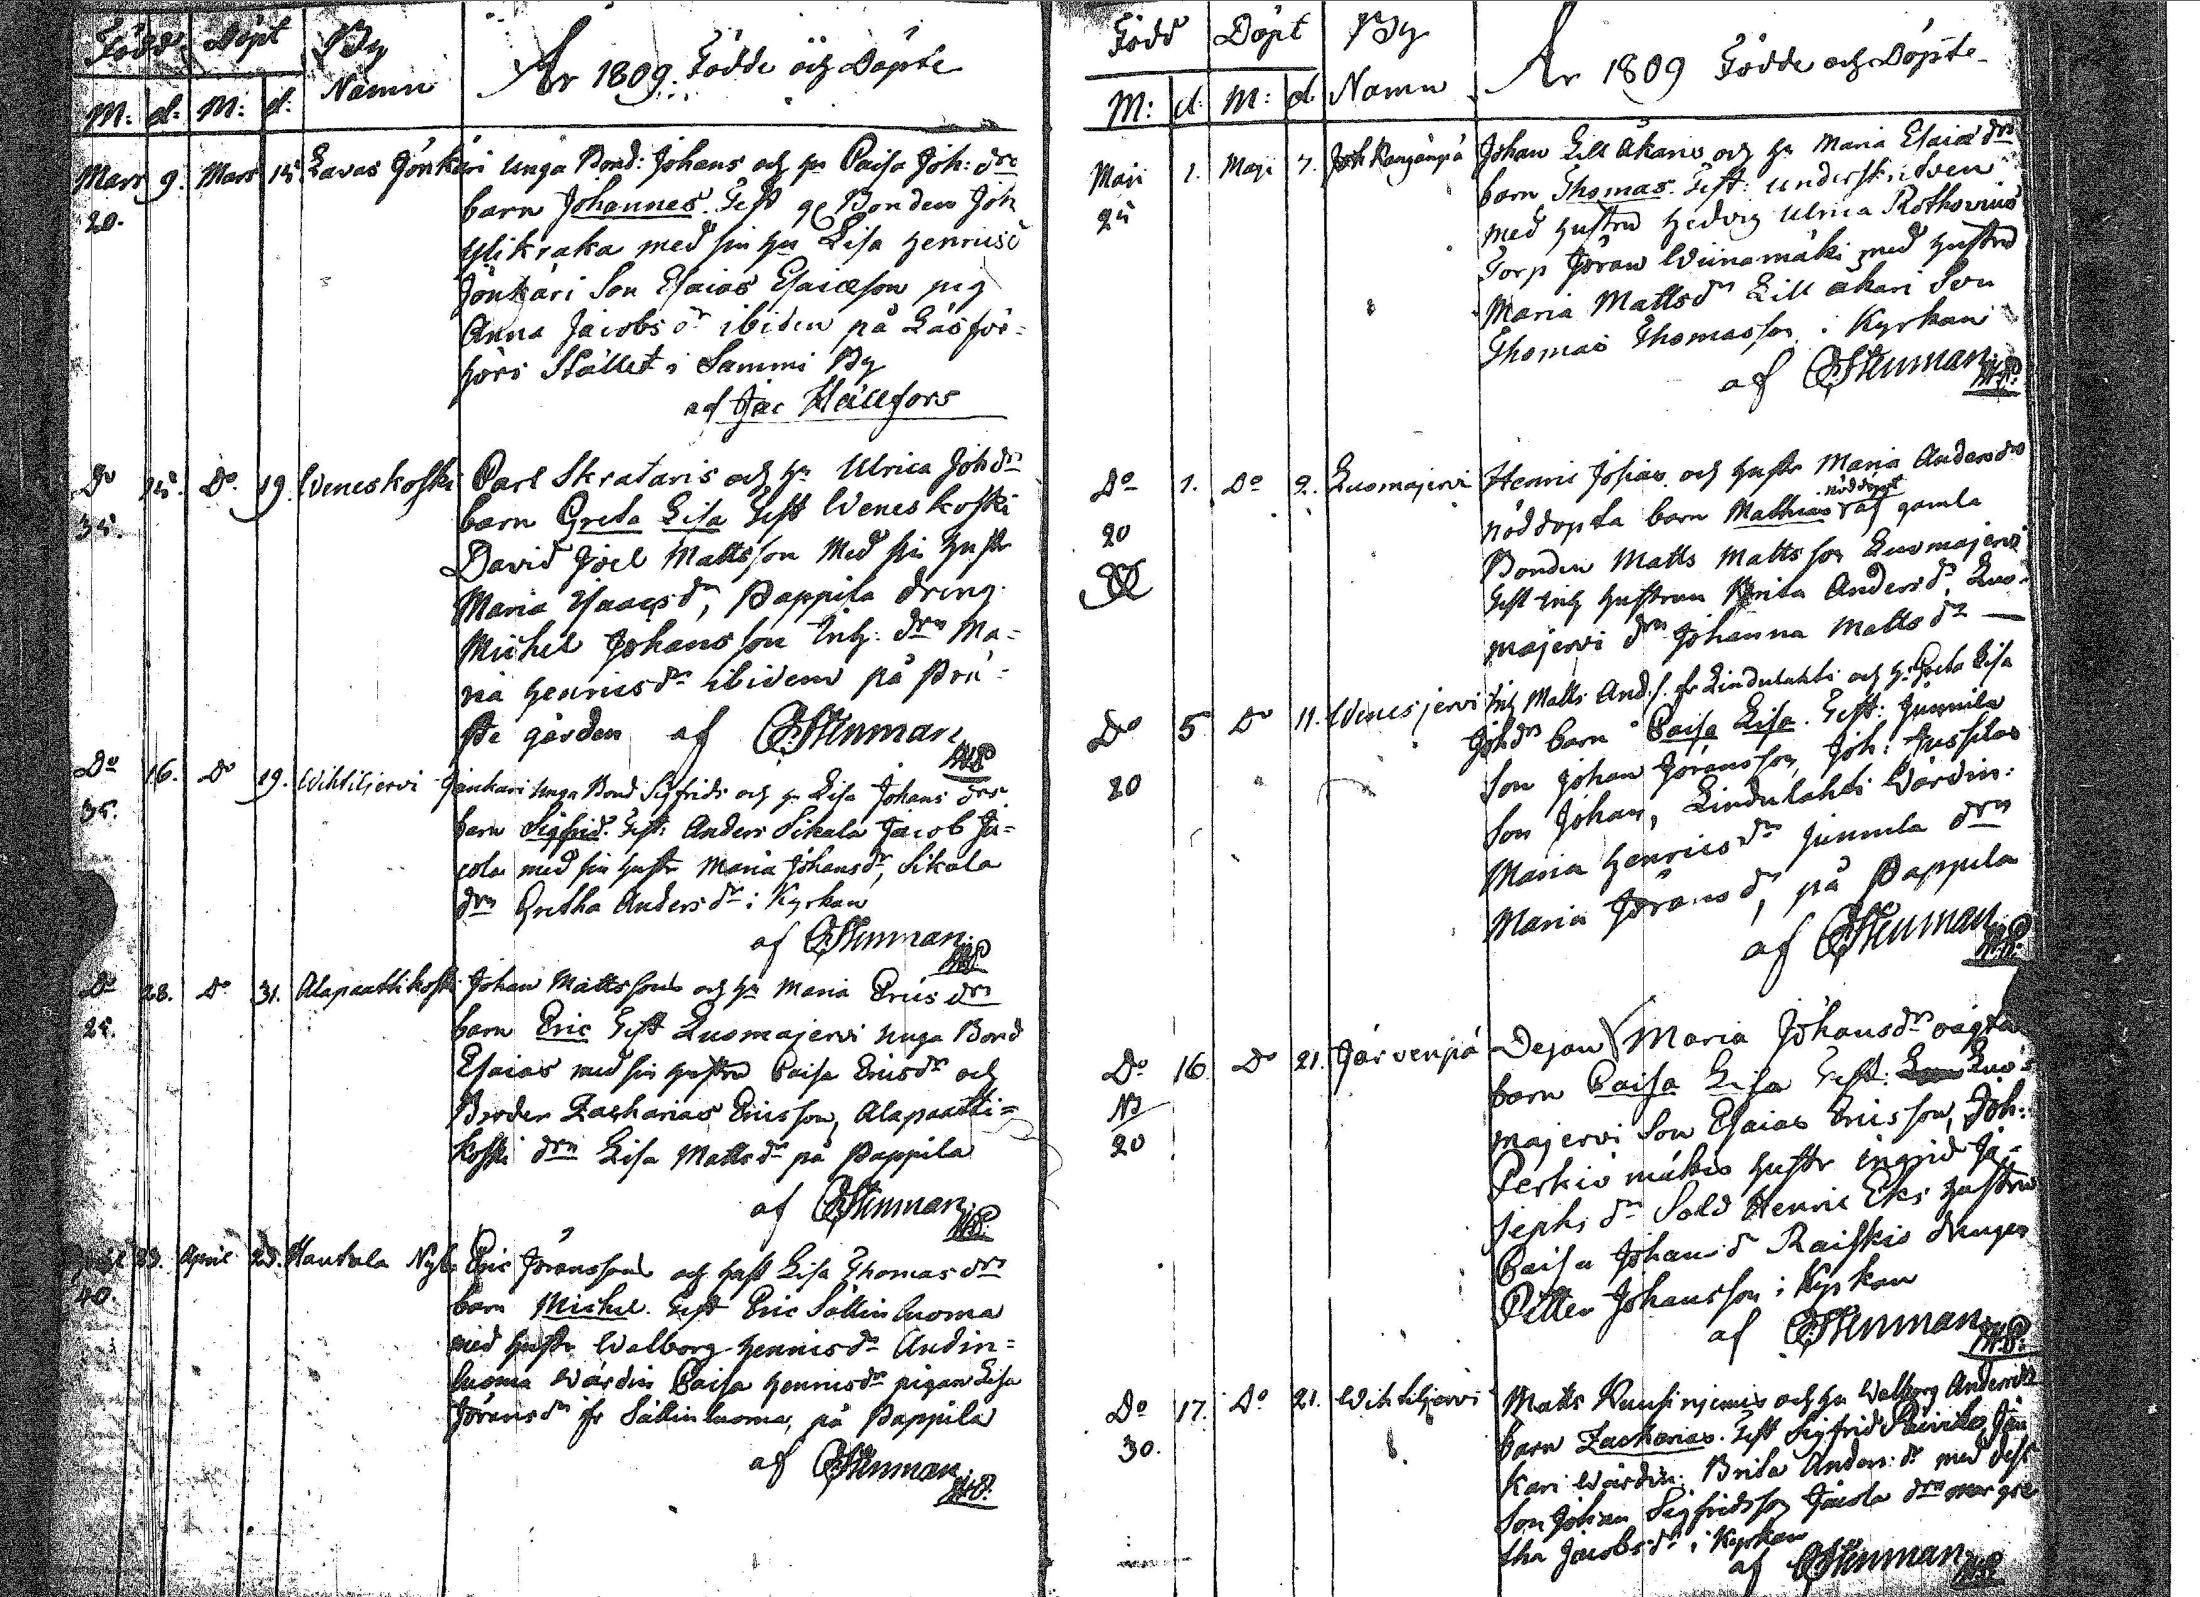 Född Döpt By
Namn
M: d: M: d:
År 1809. Födde och Döpte
Mars 9. Mars 15. Lavas Jönkäri unga Bond: Johans och hu Caisa Joh: drs
20.
barn Johannes. Test ge Bonden Joh
Ylikraka med sin hu Lisa Henrics d
Jönkäri Son Esaias Esaiæson pig
Anna Jacobs dr ibidem på Läsför-
hörs Stället i Sammi By
af Jac Hällfors
Do 15. Do 19. Weneskoski Carl Skrataris och hu Ulrica Joh drs
35.
barn Greta Lisa Test Weneskoski
David Joel Mattsson Med sin hustr
Maria Isaacs dr, Pappila dreng
Michel Johansson Inh: drn Ma-
ria Henrics dr ibidem på Prä-
ste gården af CJStenman
Do 16. Do 19. Wihtiljervi Jänkari unga Bond Sigfrids och hu Lisa Johans drs
35.
barn Sigfrid. Test: Anders Sikala Jacob Ja-
cola med sin hustr Maria Johans dr, Sikala
drn Gretha Anders dr i Kyrkan
af CJStenman
Do 28. Do 31. Alapaattikoski Johan Mattssons och hu Maria Erics drs
25.
barn Eric Test Luomajervi unga Bond
Esaias med sin hustru Caisa Erics dr och
Broder Zacharias Ericsson, Alapaatti-
koski drn Lisa Matts dr på Pappila
af CJStenman
23. April Hautala Nyb: Eric Jöranssons och hust Lisa Thomas drs
40.
barn Michel. Test Eric Sällinluoma
med hustr Walborg Henrics dr Andin-
luoma Wärdin Caisa Henrics dr pigan Lisa
Jörans dr fr Sällinluoma, på Pappila
af CJStenman
Född Döpt By
Namn
M: d: M: d.
År 1809 Födde och Döpte
Maji 1. Maji 7. Joh Kangänpä Johan Lill Åkaris och hu Maria Esaiæ drs
25
barn Thomas. Test: underskrifven
med hustru Hedvig Ulrica Rothovius
Torp Jöran Wiinamäki med hustru
Maria Matts dr Lill åkari Son
Thomas Thomasson i Kyrkan
af CJStenman
Do 1. Do 2. Luomajervi Henric Josias och hustr Maria Anders drs
20
nöddöpta barn Mathias nöddöpt af gamla
Bonden Matts Mattsson Luomajervi
Test Inh hustrun Brita Anders dr, Luo-
majervi drn Johanna Matts dr
Do 5 Do 11. Wenesjervi Inh Matts And. s. fr Lindulahti och h. Greta Lisa
20
Joh drs barn Caisa Lisa. Test: Junnila
Son Johan Jöransson, Joh: Jussilas
Son Johan, Lindulahti Wärdin:
Maria Henrics dr Junnila drn
Maria Jörans dr, på Pappila
af CJStenman
Do 16 Do 21. Järvenpä Dejan Maria Johans drs oägta
NB
20
barn Caisa Lisa Test: Luo-
majervi Son Esaias Ericsson, Joh:
Perkiö mäkis hustr ingrid Jo-
sephs dr Sold Henric Eks hustru
Caisa Johans d Raiskio drengen
Petter Johansson i Kyrkan
af CJStenman
Do 17. Do 21. Wihtiljervi Matts Kuusinjemis och hu Walborg Anders drs
30.
barn Zacharias. Test Sigfrid Jän
kari Wärdin: Brita Anders: dr med dess
Son Johan Sigfridsson Jacola drn Margre
tha Jacobs dr i Kyrkan
af CJStenman